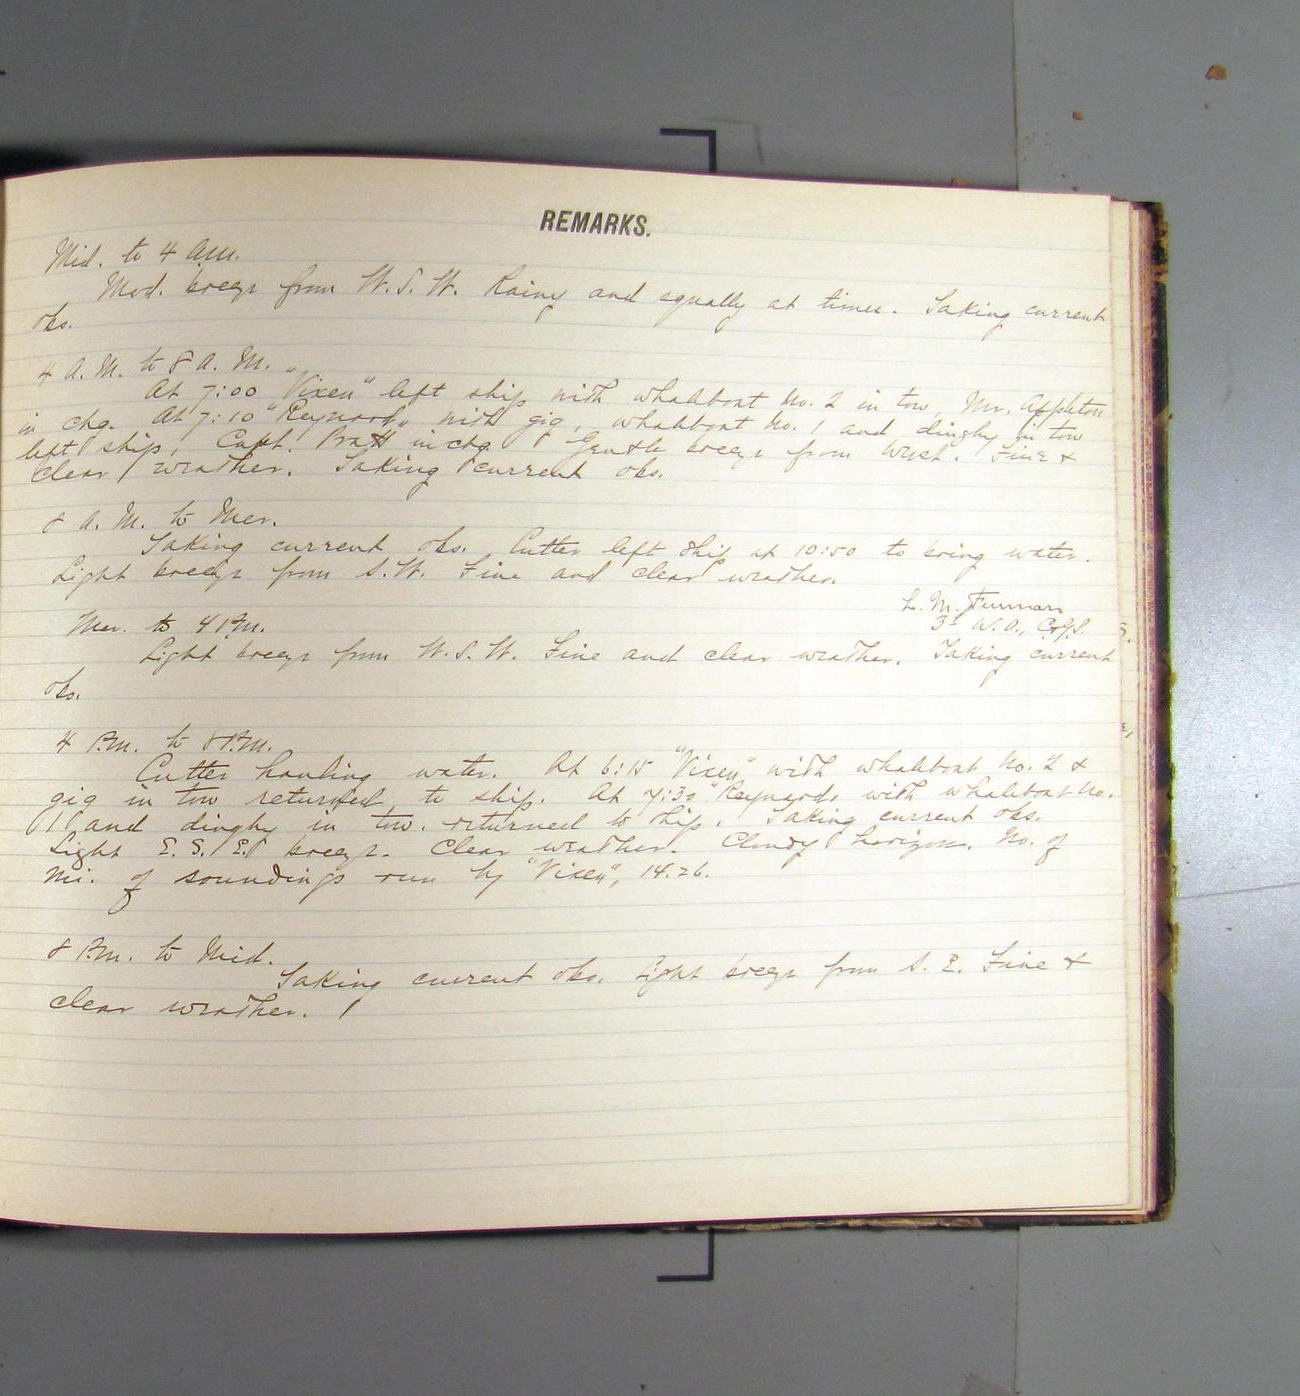 REMARKS.
Mid. to 4 a.m.
Mod. breeze from W.S.W. Rainy and squally at times. Taking current
obs.
4 A.M. to 8 A.M.
At 7:00 "Vixen" left ship with whaleboat No. 2 in tow, Mr. Appleton
in chg. At 7:10 "Reynard" with gig, whaleboat No. 1 and dinghy in tow
left ship, Capt. Pratt in chg. Gentle breeze from West. Fine &
clear weather. Taking current obs.
8 A.M. to Mer.
Taking current obs. Cutter left ship at 10:50 to bring water.
Light breeze from S.W. Fine and clear weather.
L. M. Furman
3d W.O., C&GS.
Mer. to 4 P.M.
Light breeze from W.S.W. Fine and clear weather. Taking current
obs.
4 P.M. to 8 P.M.
Cutter hauling water. At 6:15 "Vixen" with whaleboat No. 2 &
gig in tow returned to ship. At 7:30 "Reynard" with whaleboat No.
1 and dinghy in tow. returned to ship. Taking current obs.
Light E.S.E. breeze. Clear weather. Cloudy horizon. No. of
mi. of soundings run by "Vixen", 14.26.
8 P.M. to Mid.
Taking current obs. Light breeze from S.E. Fine &
clear weather.